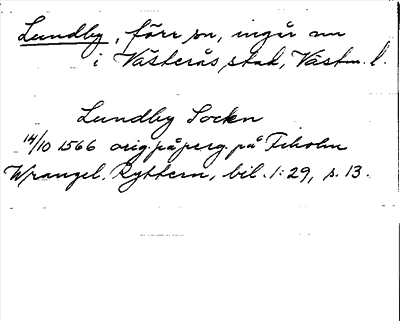 Lundby, förr sn, ingår nu
i Västerås stad, Västm. l.
Lundby Socken
14/10 1566 orig. på perg. på Tiholm
Wrangel, Ryttern, bil. 1:29, s. 13.